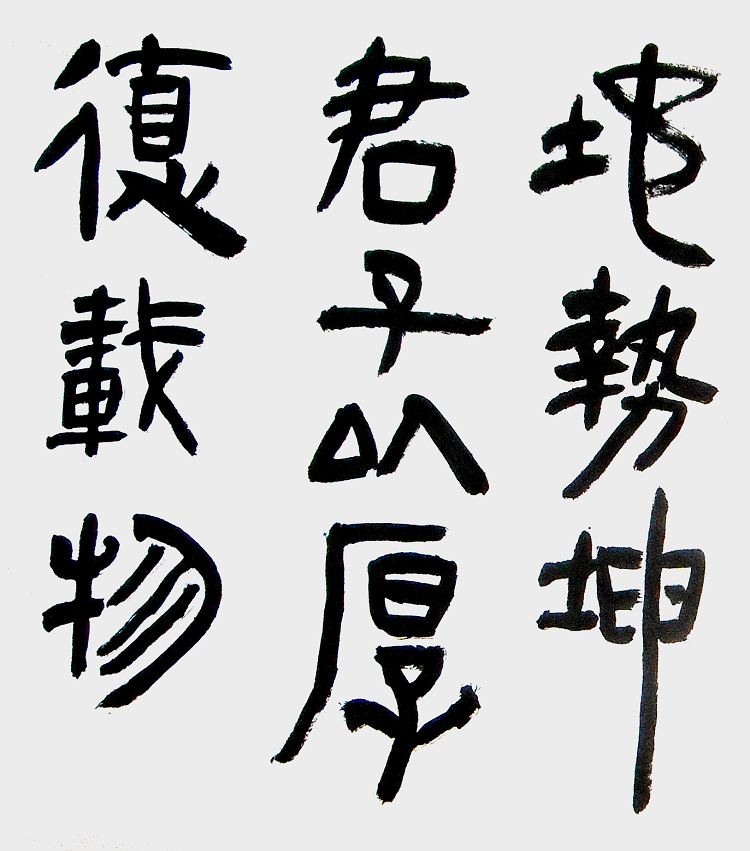 地勢坤
君子以厚
復載物